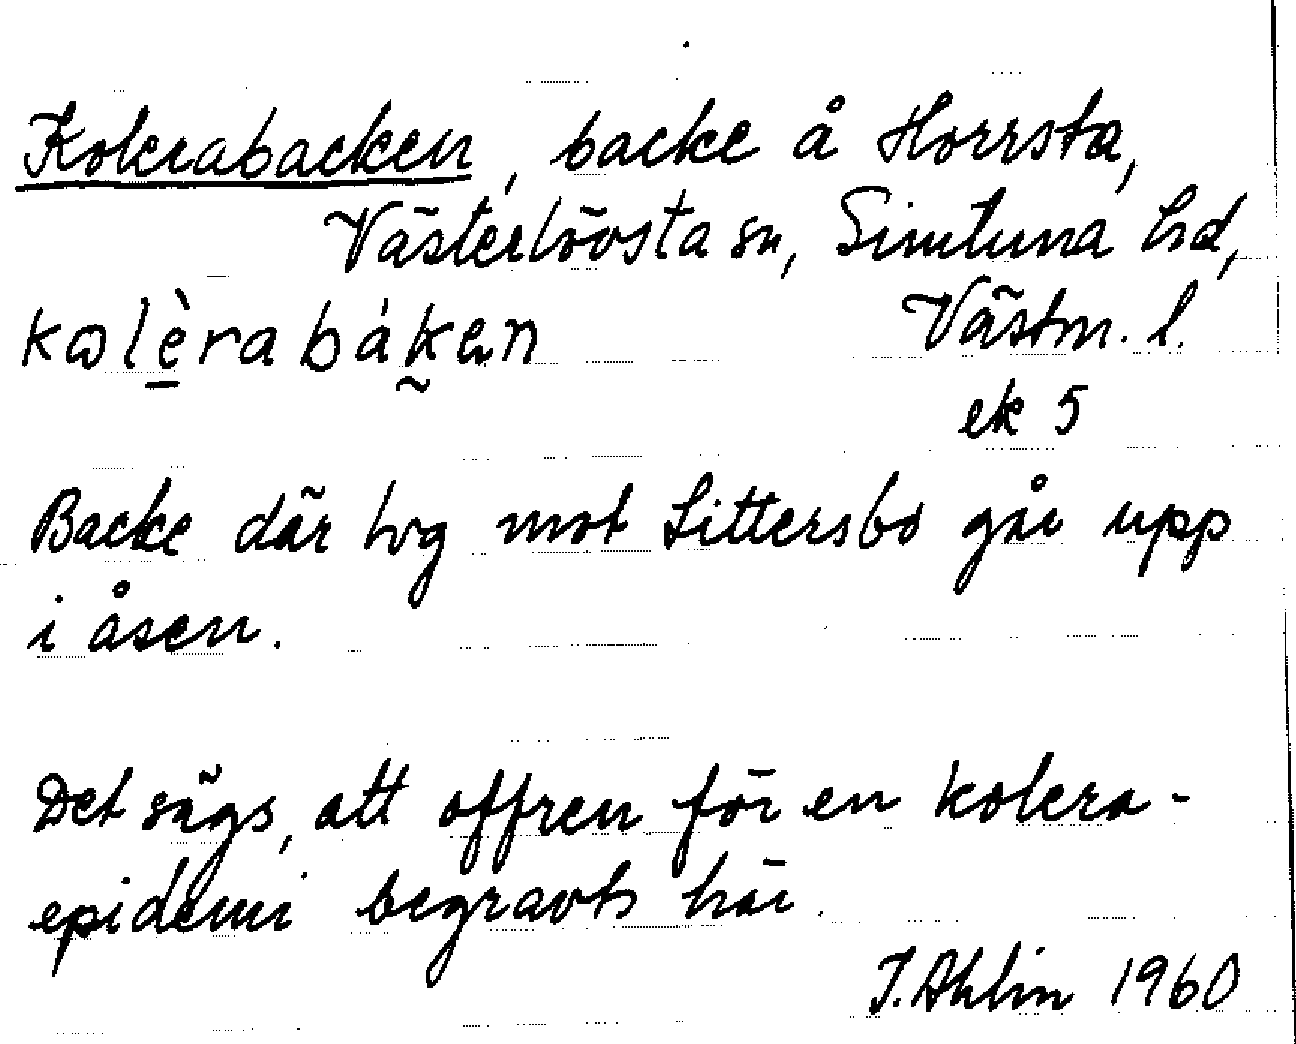 Kolerabacken, backe å Horrsta,
Västerlövsta sn, Simtuna hd,
kolèrabáken Västm. l.
ek 5
Backe där tvg mot Sittersbo går upp
i åsen.
Det sägs, att offren för en kolera-
epidemi begravts här.
I. Ahlin 1960